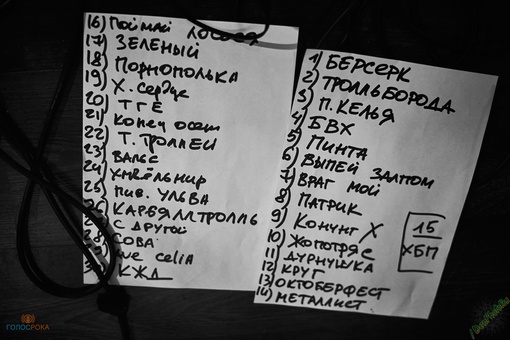 16) ПОЙМАЙ ЛОСОСЯ
17) ЗЕЛЕНЫЙ
18) ПОРНОПОЛЬКА
19) Х. СЕРДЦЕ
20) ТГЕ
21) КОНЕЦ ОСЕНИ
22) Т. ТРОЛЛЕЙ
23) ВАЛЬС
24) ХМЕЛЬНИР
25) ПИВ. УЛЬВА
КАРБЯЛЛТРОЛЛЬ
С ДРУГОЙ
СОВА
we celia
КЖД
1) БЕРСЕРК
2) ТРОЛЛЬБОРОДА
3) П. КЕЛЬЯ
4) БВХ
5) ПИНТА
6) ВЫПЕЙ ЗАЛПОМ
7) ВРАГ МОЙ
8) ПАТРИК
9) КОНУНГ Х
10) ЖОПОТРЯС
11) ДУРНУШКА
12) КРУГ
13) ОКТОБЕРФЕСТ
14) МЕТАЛЛИСТ
15
ХБП
ГОЛОСРОКА